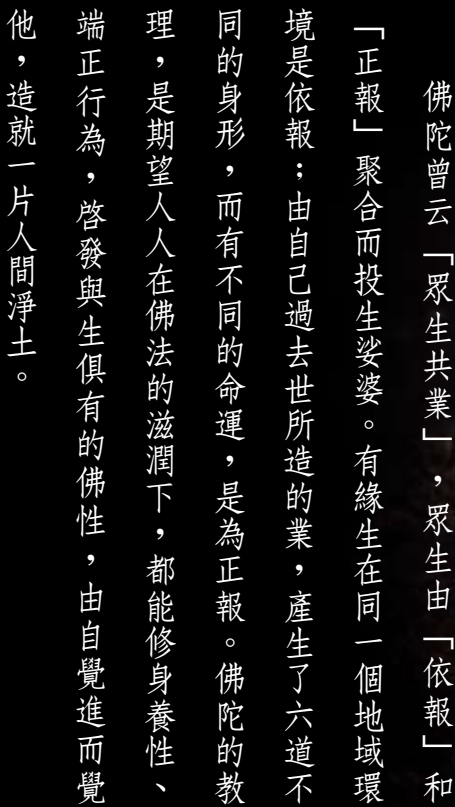 佛陀曾云「眾生共業」，眾生由「依報」和
「正報」聚合而投生娑婆。有緣生在同一個地域環
境是依報；由自己過去世所造的業，產生了六道不
同的身形，而有不同的命運，是為正報。佛陀的教
理，是期望人人在佛法的滋潤下，都能修身養性、
端正行為，啓發與生俱有的佛性，由自覺進而覺
他，造就一片人間淨土。